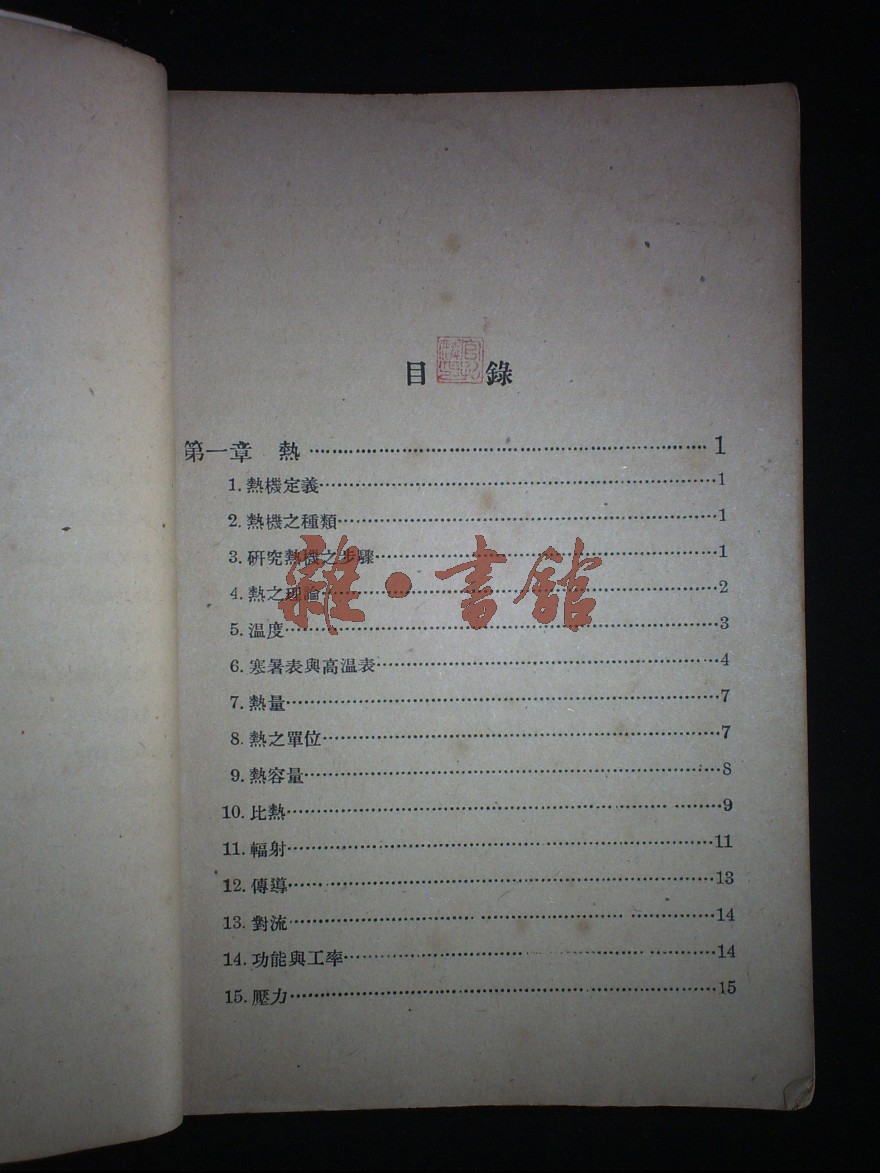 目 錄
第一章 熱………1
1. 熱機定義………1
2. 熱機之種類………1
3. 研究熱機之步驟………1
4. 熱之理論………2
5. 温度………3
6. 寒暑表與高温表………4
7. 熱量………7
8. 熱之單位………7
9. 熱容量………8
10. 比熱………9
11. 輻射………11
12. 傳導………13
13. 對流………14
14. 功能與工率………14
15. 壓力………15
雜·書館